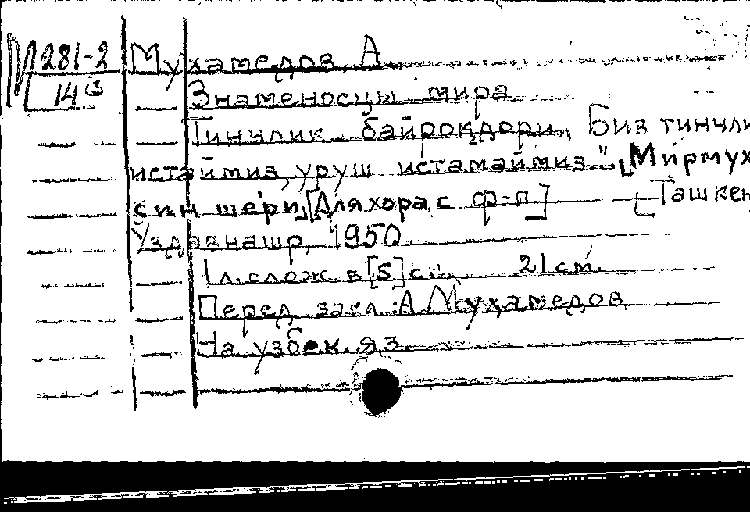 М281-2 Мухамедов, А.
14
Знаменосцы мира
Тинчлик байроқдори, Биз тинчли
истаймиз, уруш истамаймиз." [Мирмух
син шери, [Для хора с ф-п.] Ташкен
Уздавнашр, 1950
1 л. слож. в [5] с. 21 cm.
Перед загл.: А. Мухамедов
На узбек. яз.